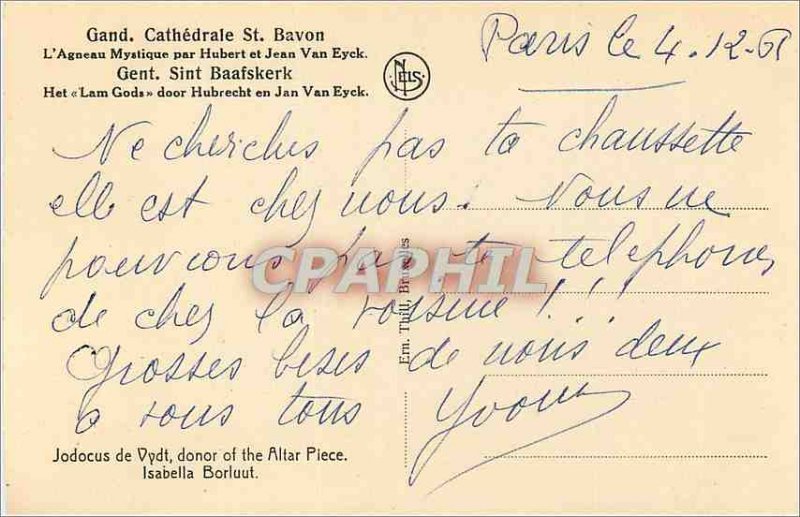 Gand. Cathédrale St. Bavon
L'Agneau Mystique par Hubert et Jean Van Eyck.
Gent. Sint Baafskerk
Het «Lam Gods» door Hubrecht en Jan Van Eyck.
NELS
Paris le 4.12-61
Ne cherches pas ta chaussette
elle est chez nous. Nous ne
pouvions pas te telephoner
de chez la voisine!!!
Grosses bises de nous deux
a vous tous Yvonne
CPAPHIL
Ern. Thill, Bruxelles
Jodocus de Vydt, donor of the Altar Piece.
Isabella Borluut.